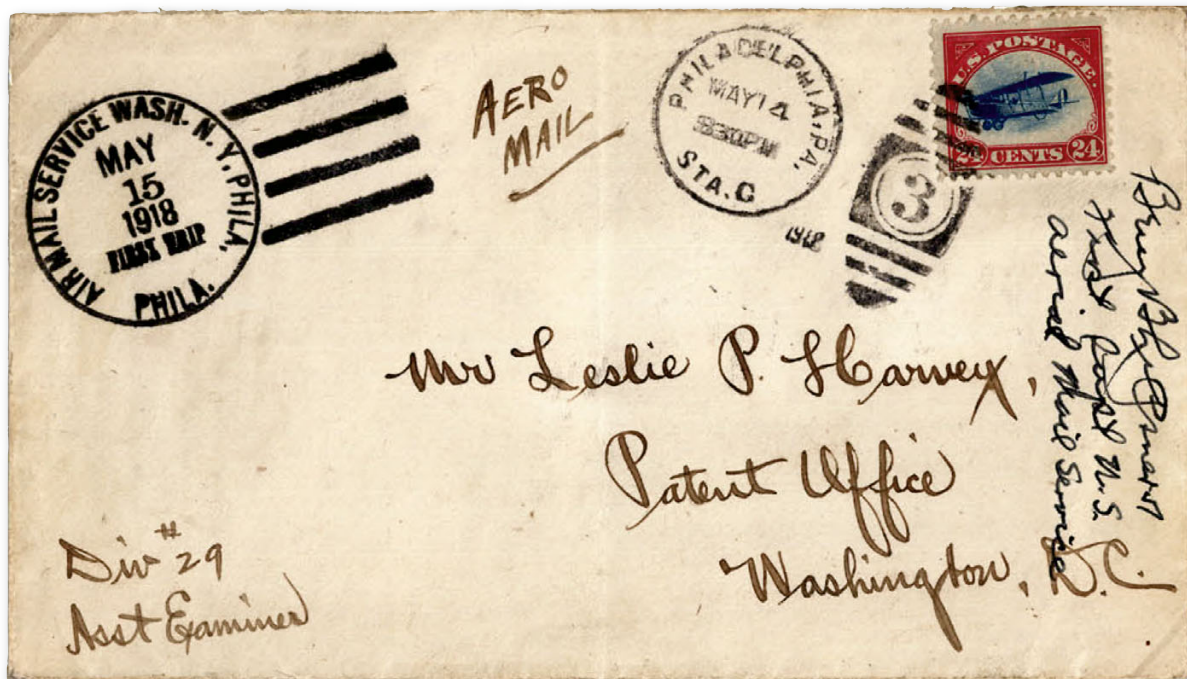 AIR MAIL SERVICE WASH. N.Y. PHILA.
MAY
15
1918
FIRST TRIP
PHILA.
AERO
MAIL
PHILADELPHIA, PA.
MAY 14
830PM
STA. C
1918
3
U.S. POSTAGE.
24 CENTS 24
Mr Leslie P. Harvey,
Patent Office
Washington, D.C.
Div #29
Asst Examiner
First Supt U.S.
aerial Mail Service